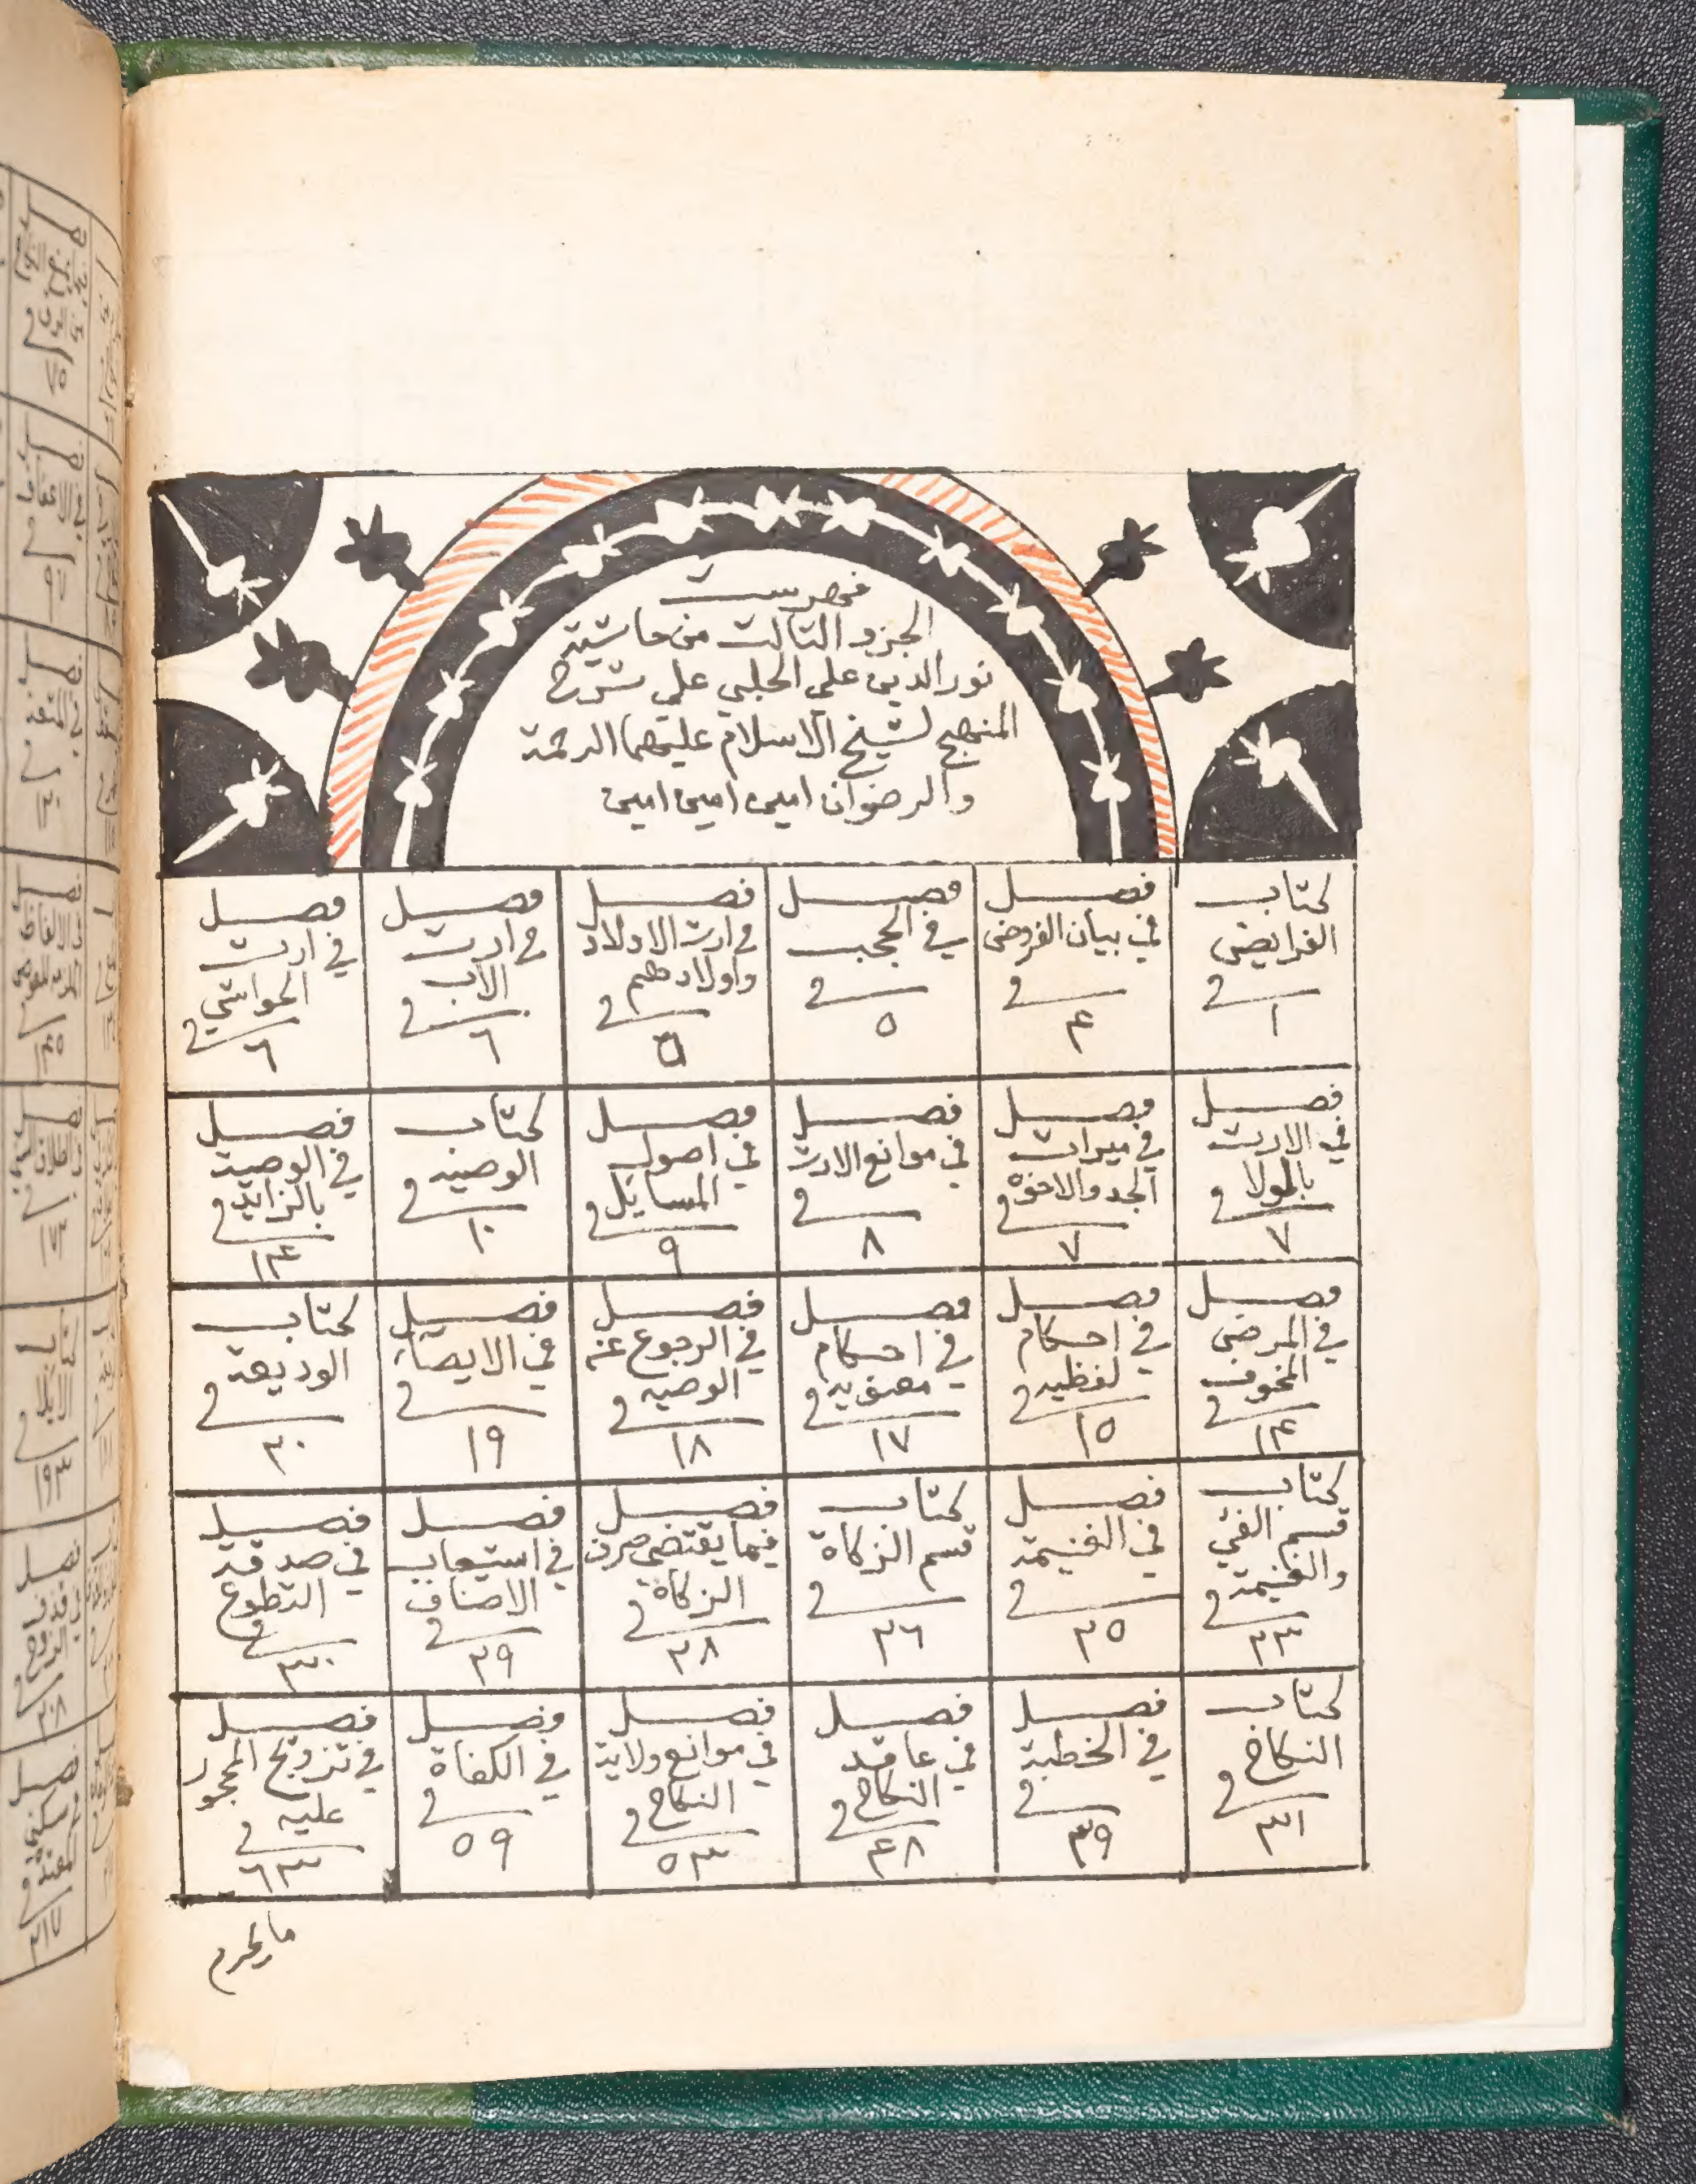 فهرست
الجزو الثالث من حاشية
نور الدين علي الحلبي علي شرح
المنهج لشيخ الاسلام عليهما الرحمة
والرضوان امين امين امين
كتاب
الفرايض
في
١
فصل
في بيان الفروض
في
٤
فصل
في الحجب
في
٥
فصل
في ارث الاولاد
واولادهم
في
٥
فصل
في ارث
الاب
في
٦
فصل
في ارث
الحواشي
في
٦
فصل
في الارث
بالولا
في
٧
فصل
في ميراث
الجد والاخوة
في
٧
فصل
في موانع الارث
في
٨
فصل
في اصول
المسايل
في
٩
كتاب
الوصية
في
١٠
فصل
في الوصية
بالزايد
في
١٤
فصل
في المرض
المخوف
في
١٤
فصل
في احكام
لفظيه
في
١٥
فصل
في احكام
معنويه
في
١٧
فصل
في الرجوع عن
الوصيه
في
١٨
فصل
في الايصاء
في
١٩
كتاب
الوديعة
في
٢٠
كتاب
قسم الفئ
والغنيمة
في
٢٣
فصل
في الغنيمة
في
٢٥
كتاب
قسم الزكاة
في
٢٦
فصل
فيما يقتضي صرف
الزكاة
في
٢٨
فصل
في استيعاب
الاصناف
في
٢٩
فصل
في صدقة
التطوع
في
٣٠
كتاب
النكاح
في
٣١
فصل
في الخطبة
في
٣٩
فصل
في عاقد
النكاح
في
٤٨
فصل
في موانع ولاية
النكاح
في
٥٣
فصل
في الكفاة
في
٥٩
فصل
في تزويج المحجور
عليه
في
٦٣